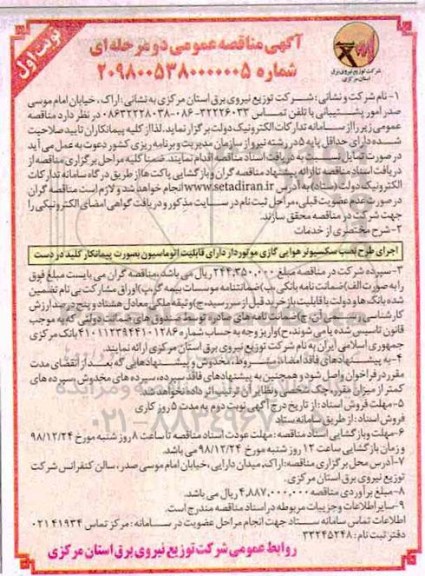 نوبت اول
آگهی مناقصه عمومی دو مرحله ای
شماره ۲۰۹۸۰۰۵۳۸۰۰۰۰۰۰۵
شرکت توزیع نیروی برق
استان مرکزی
۱- نام شرکت و نشانی: شرکت توزیع نیروی برق استان مرکزی به نشانی: اراک، خیابان امام موسی
صدر امور پشتیبانی با تلفن تماس ۳۲۲۲۶۰۳۳-۰۸۶ - ۰۸۶۳۲۲۲۸۰۳۸ در نظر دارد مناقصه
عمومی زیر را از سامانه تدارکات الکترونیک دولت برگزار نماید. لذا از کلیه پیمانکاران تایید صلاحیت
شده دارای حداقل پایه ۵ در رشته نیرو از سازمان مدیریت و برنامه ریزی کشور دعوت به عمل می آید
در صورت تمایل نسبت به دریافت اسناد مناقصه اقدام نمایند. ضمنا کلیه مراحل برگزاری مناقصه از
دریافت اسناد مناقصه تا ارائه پیشنهاد مناقصه گران و بازگشایی پاکت ها از طریق درگاه سامانه تدارکات
الکترونیک دولت (ستاد) به آدرس www.setadiran.ir انجام خواهد شد و لازم است مناقصه گران
در صورت عدم عضویت قبلی، مراحل ثبت نام در سایت مذکور و دریافت گواهی امضای الکترونیکی را
جهت شرکت در مناقصه محقق سازند.
۲- شرح مختصری از خدمات
اجرای طرح نصب سکسیونر هوایی گازی موتوردار دارای قابلیت اتوماسیون بصورت پیمانکار کلید در دست
۳- سپرده شرکت در مناقصه مبلغ ۲۴۴,۳۵۰,۰۰۰ ریال می باشد. مناقصه گران می بایست مبلغ فوق
را به صورت الف) ضمانت نامه بانکی ب) ضمانتنامه موسسات بیمه گر پ) اوراق مشارکت بی نام تضمین
شده بانک ها و دولت با قابلیت باز خرید قبل از سررسید ج) وثیقه ملکی معادل هشتاد و پنج درصد ارزش
کارشناسی رسمی آن چ) ضمانت نامه های صادره توسط صندوق های ضمانت دولتی که به موجب
قانون تاسیس شده یا می شوند، ح) واریز وجه به حساب شماره بانک مرکزی
جمهوری اسلامی ایران به نام شرکت توزیع نیروی برق استان مرکزی ارائه نمایند.
۴- به پیشنهادهای فاقد امضاء، مشروط، مخدوش و پیشنهادهایی که بعد از انقضای مدت
مقرر در فراخوان واصل شود و همچنین به پیشنهادهای فاقد سپرده، سپرده های مخدوش، سپرده های
کمتر از میزان مقرر، چک شخصی و نظایر آن ترتیب اثر داده نخواهد شد.
۵- مهلت فروش اسناد: از تاریخ درج آگهی نوبت دوم به مدت ۵ روز کاری
فروش اسناد: از طریق سامانه ستاد
۶- مهلت و بازگشایی اسناد مناقصه: مهلت عودت اسناد مناقصه تا ساعت ۸ روز شنبه مورخ ۹۸/۱۲/۲۴
و زمان بازگشایی ساعت ۱۲ روز شنبه مورخ ۹۸/۱۲/۲۴ می باشد.
۷- آدرس محل برگزاری مناقصه: اراک، میدان دارایی، خیابان امام موسی صدر، سالن کنفرانس شرکت
توزیع نیروی برق استان مرکزی.
۸- مبلغ برآوردی مناقصه ۴,۸۸۷,۰۰۰,۰۰۰ ریال می باشد.
۹- سایر اطلاعات و جزییات مربوطه در اسناد مناقصه مندرج است.
اطلاعات تماس سامانه ستاد جهت انجام مراحل عضویت در سامانه: مرکز تماس ۰۲۱۴۱۹۳۴
دفتر ثبت نام: ۳۳۲۴۵۲۴۸
روابط عمومی شرکت توزیع نیروی برق استان مرکزی